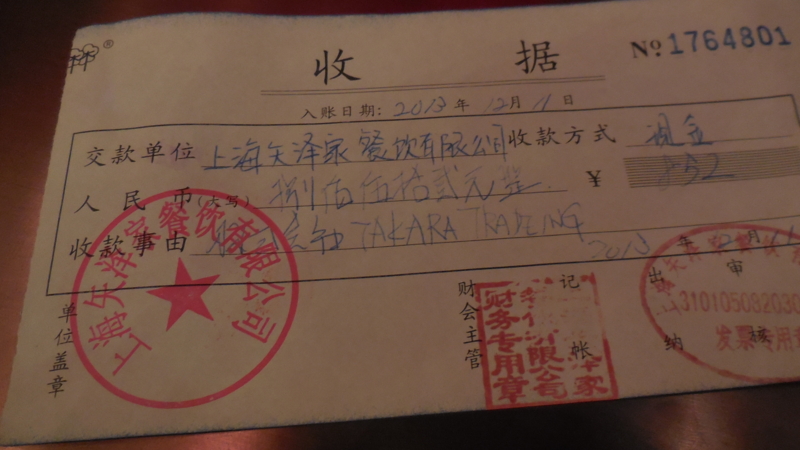 收 据 № 1764801
入账日期: 2013 年 12 月 11 日
交款单位 上海矢泽家餐饮有限公司 收款方式 现金
人 民 币 (大写) 捌佰伍拾贰元整 ¥ 852
收款事由 TAKARA TRADING
2013 年 12 月 11
单位盖章
财会主管
记 帐
出 纳
审 核
上海矢泽家餐饮有限公司
财务专用章
310105092030
发票专用章